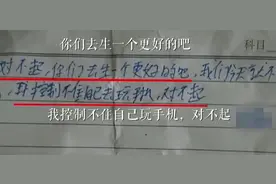 你们去生一个更好的吧
科目
对不起,你们去生一个更好的吧,我们今天
控制不住自己去玩手机,对不起
我控制不住自己玩手机,对不起